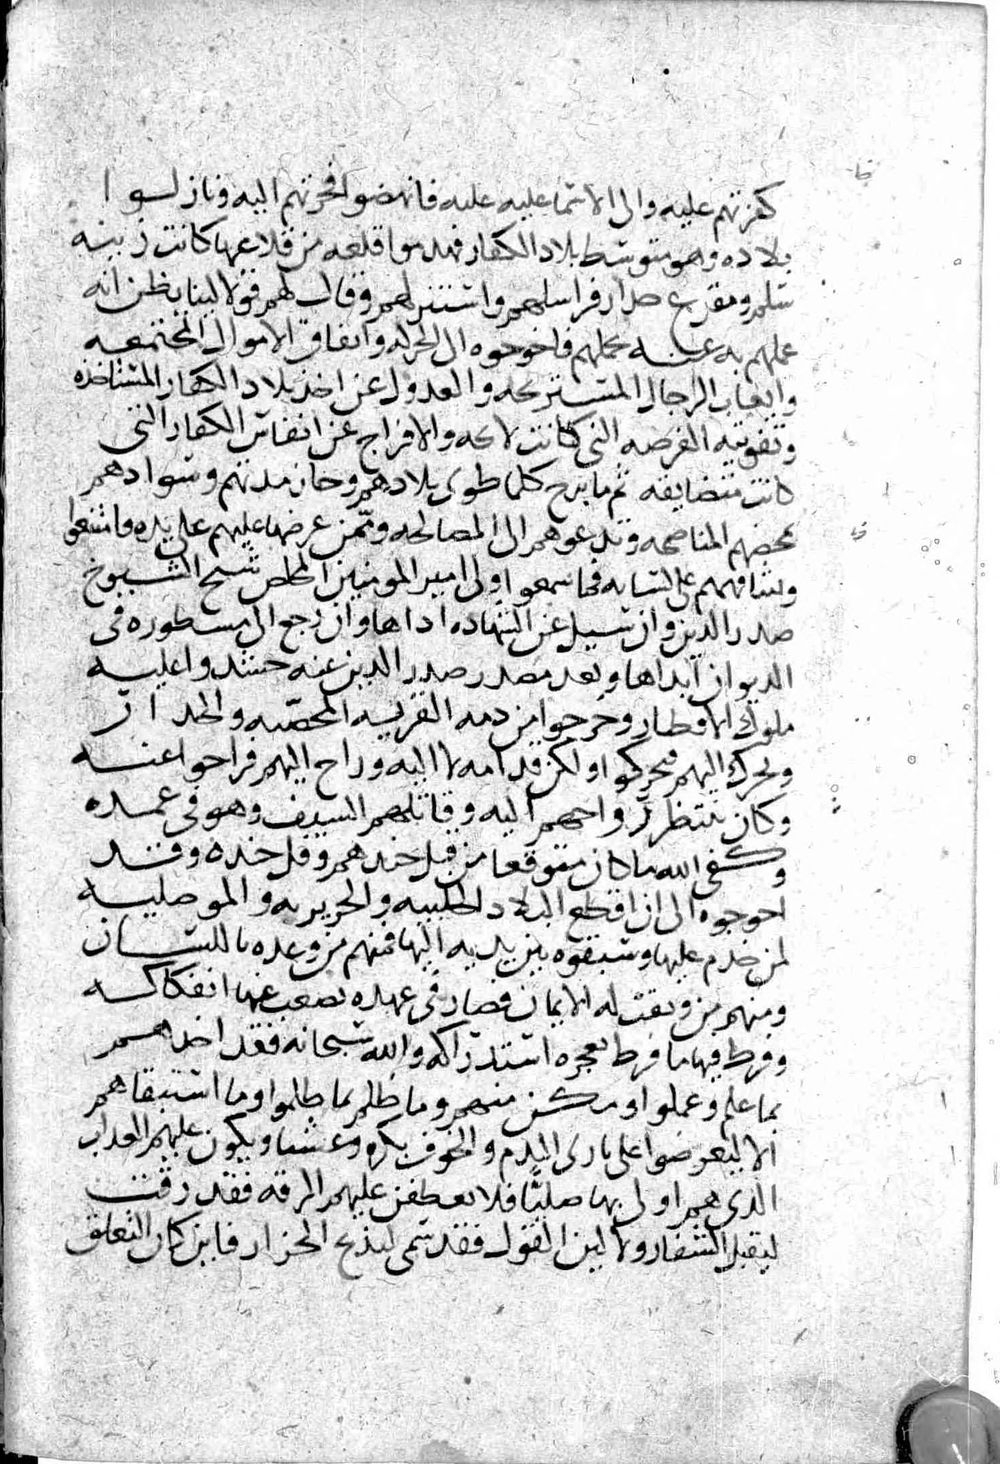 كفرتهم عليه والى الاستماعليه عليه فانهضوا فحرتهم اليه ونازلوا
بلاده وهو متوسط بلاد الكفار فهدموا قلعه من قلاعها كانت زينه
سلم ومقرع صدار فراسلهم واستنزلهم وقال لهم قولا لينا يظن انه
عملهم به عنه محملهم فاخوجوه الى الحركه وانفاق الاموال المجتمعه
واتعاب الرجال المستريحه والعدول عن اخذ بلاد الكفار المستاخذه
وتفويته الفرصه التى كانت لايحه والافراج عن انفاس الكفار التى
كانت متضايقه ثم ما برح كلما طوى بلادهم وحان مدتهم وسوادهم
بمحضهم المناصحه وتدعوهم الى المصالحه وممن عرضها عليهم على يده واشفعوا
وشافههم على لسانه فما سمعوا ولى امير المومنين المخلص شيخ الشيوخ
صدر الدين وان سيل عن الشهاده اداها وان رجع الى مسطوره فى
الديوان ابداها وبعد مصدر صدر الدين عنه حشدوا عليه
ملوك الاقطار وخرجوا من دمه القريه المحصنه والجدار
وتحرك اليهم فتحركوا ولكن قدامه لا اليه وراح اليهم فراحوا عنه
وكان ينتظر رواحهم اليه وقاتلهم السيف وهو فى غمده
وكفى الله ما كان متوقعا من قبل جندهم وقل جنده وقد
احوجوه الى ان اقطع البلاد الحلبيه والجزيريه والموصليه
لمن خدم عليها وسبقوه بين يديه اليها فمنهم من وعده باللسان
ومنهم من وثقت له الايمان فصار فى عهده يصعب عنها انفكاكه
وفرط فيها ما فرط يعجزه استدراكه والله سبحانه فقد اخذهم
بما علم وعملوا ومكن منهم وما ظلم بما ظلموا وما استبقاهم
الا ليعرضوا على نار الندم والخوف بكره وعشيا ويكون عليهم العذاب
الذى هم اولى بها صليا فلا تعطفن عليهم الرقه فقد رقت
ليقبل الشفار ولا لين القول فقد سمى ليذبح الجزار فاين كان التعلق